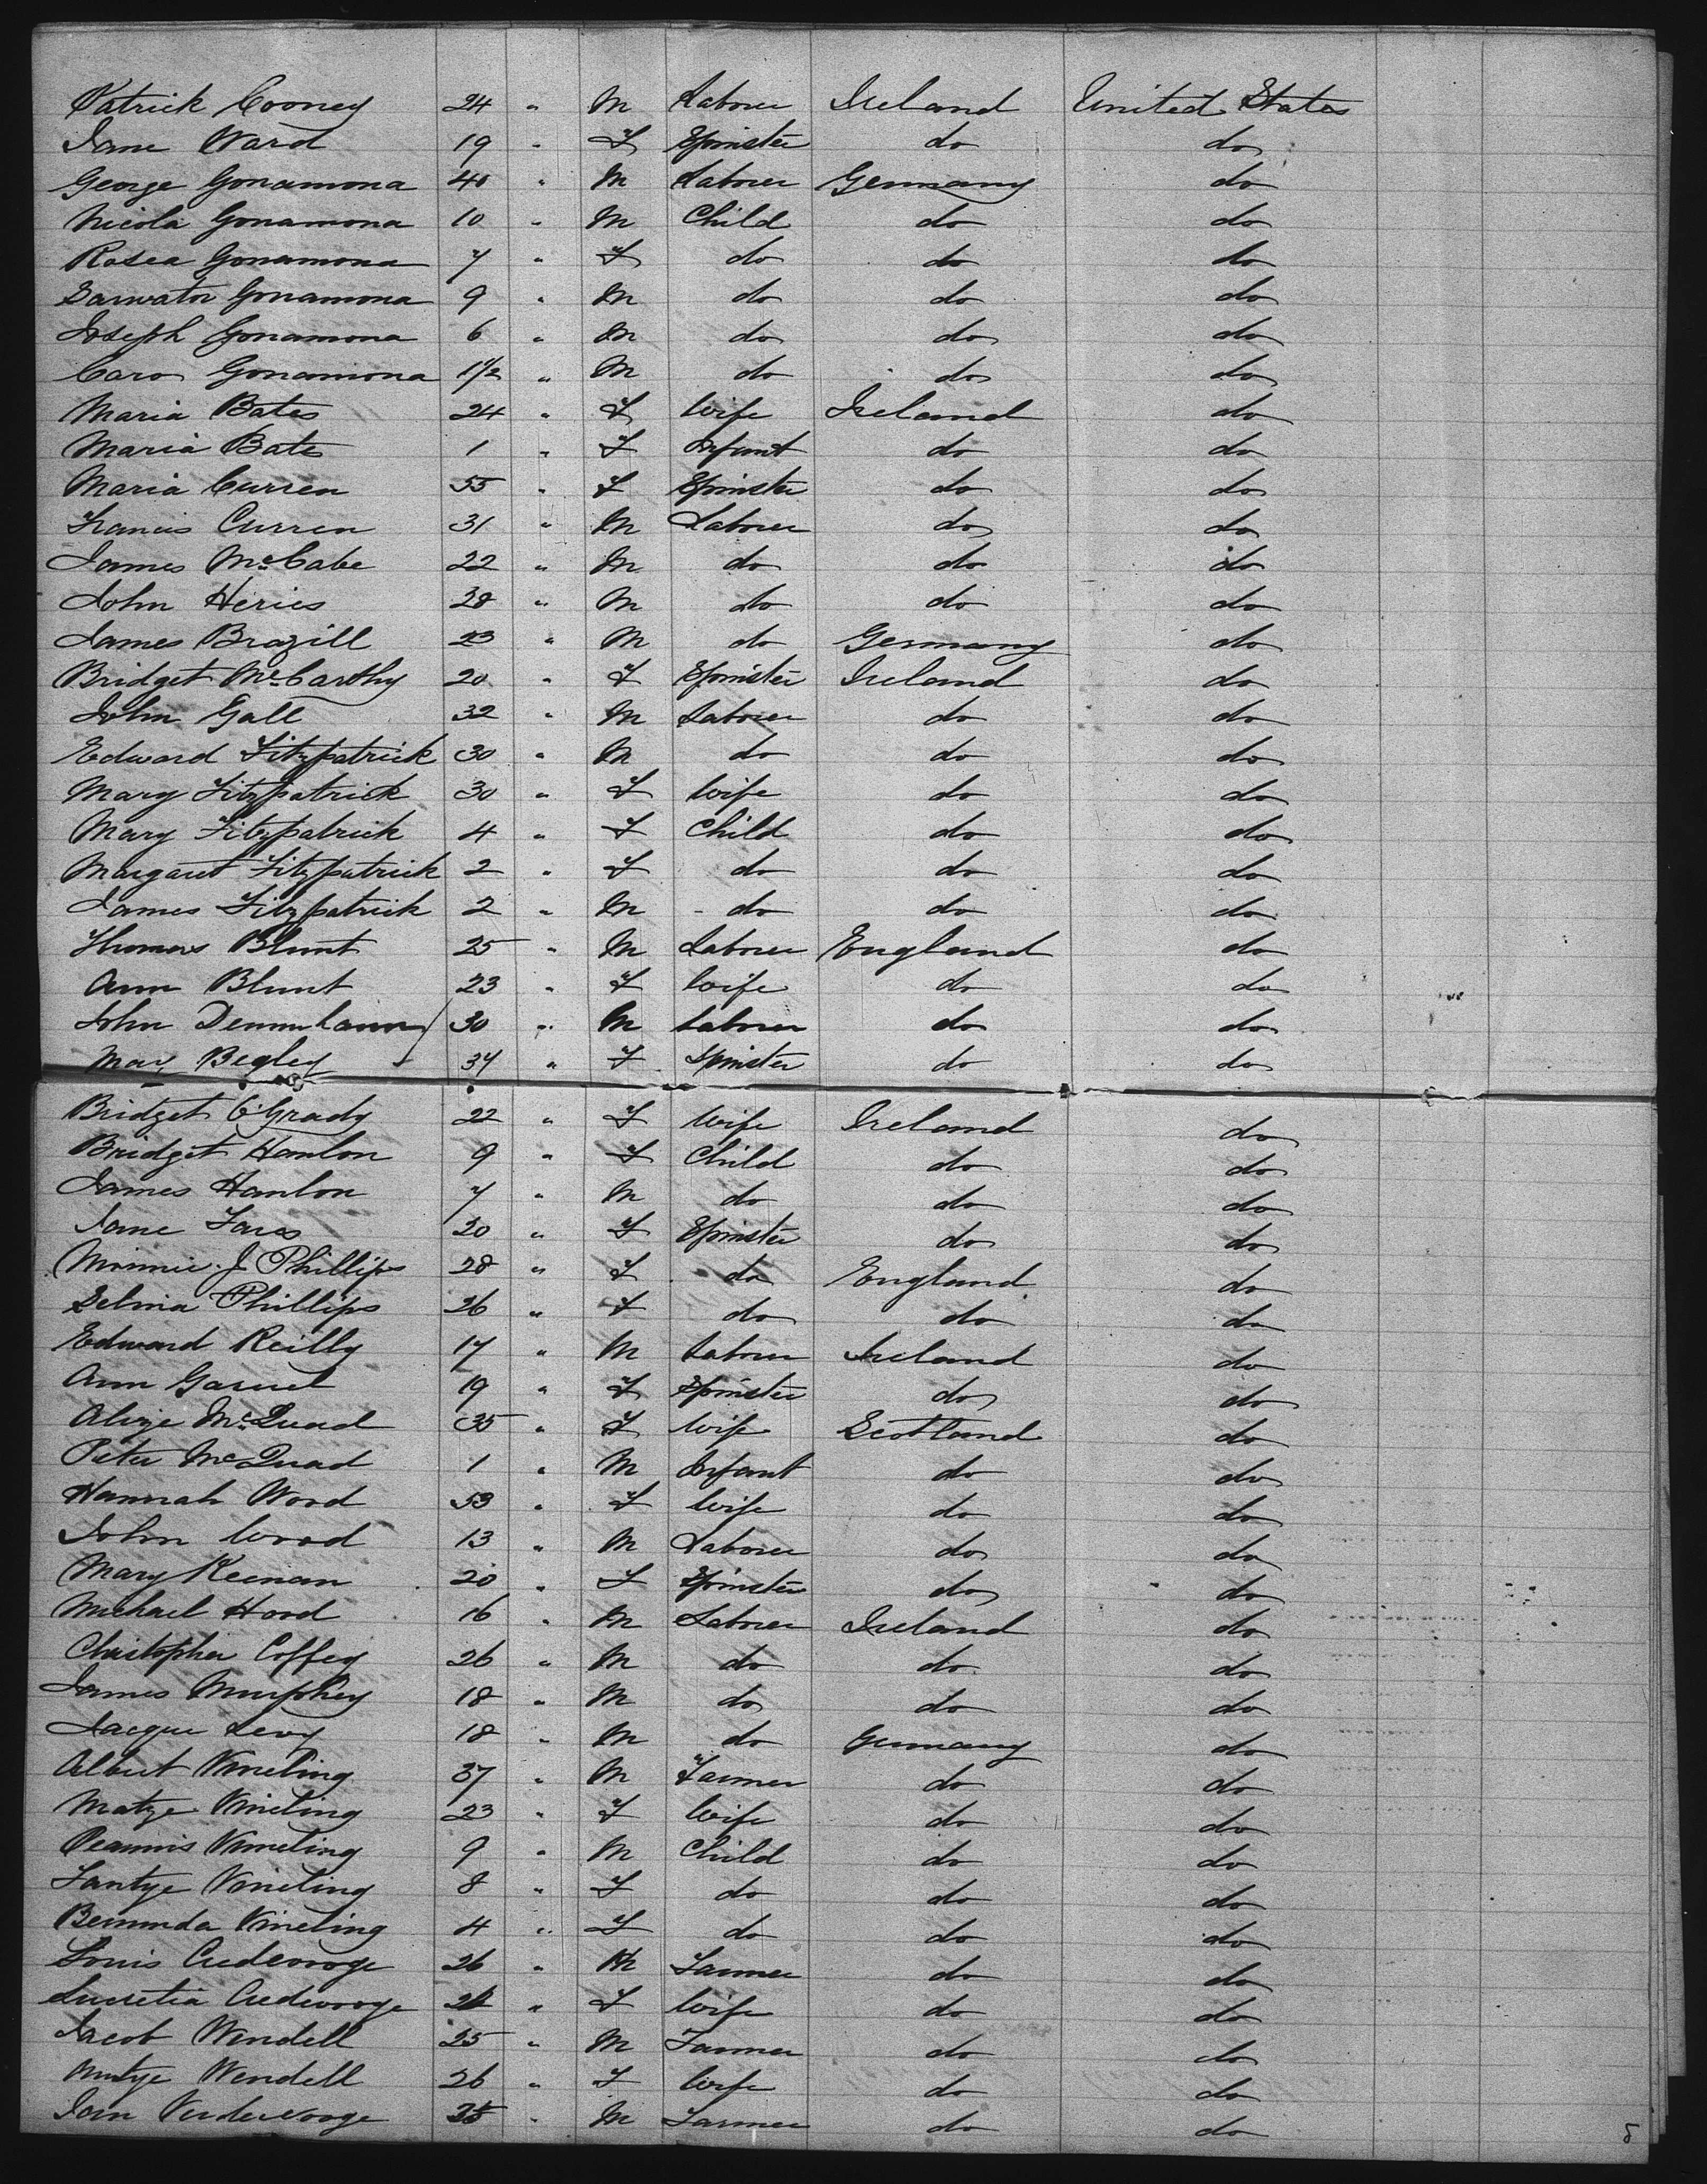 Patrick Cooney 24 " M Laborer Ireland United States
Jane Ward 19 " F Spinster do do
George Gonamona 40 " M Laborer Germany do
Nicola Gonamona 10 " M Child do do
Rosea Gonamona 7 " F do do do
Sarvator Gonamona 9 " M do do do
Joseph Gonamona 6 " M do do do
Caro Gonamona 1 1/2 " M do do do
Maria Bates 24 " F Wife Ireland do
Maria Bates 1 " F Infant do do
Maria Curren 55 " F Spinster do do
Francis Curren 31 " M Laborer do do
James McCabe 22 " M do do do
John Heries 28 " M do do do
James Brazill 23 " M do Germany do
Bridget McCarthy 20 " F Spinster Ireland do
John Gall 32 " M Laborer do do
Edward Fitzpatrick 30 " M do do do
Mary Fitzpatrick 30 " F Wife do do
Mary Fitzpatrick 4 " F Child do do
Margaret Fitzpatrick 2 " F do do do
James Fitzpatrick 2 " M do do do
Thomas Blunt 25 " M Laborer England do
Ann Blunt 23 " F Wife do do
John 30 " M Laborer do do
Mary Begley 34 " F Spinster do do
Bridget O'Grady 22 " F Wife Ireland do
Bridget Hanlon 9 " F Child do do
James Hanlon 7 " M do do do
Jane Fares 20 " F Spinster do do
Minnie J Phillips 28 " F do England do
Selina Phillips 26 " F do do do
Edward Reilly 17 " M Laborer Ireland do
Ann 19 " F Spinster do do
Alize McQuad 35 " F Wife Scotland do
Peter McQuad 1 " M Infant do do
Hannah Wood 53 " F Wife do do
John Wood 13 " M Laborer do do
Mary Keenan 20 " F Spinster do do
Michael Hood 16 " M Laborer Ireland do
Christopher Coffey 26 " M do do do
James Murphey 18 " M do do do
Jacque Levy 18 " M do Germany do
Albert Vineling 37 " M Farmer do do
Matze Vineling 23 " F Wife do do
Vineling 9 " M Child do do
Jantye Vineling 8 " F do do do
Vineling 4 " F do do do
Louis 26 " M Farmer do do
Lucretia " F Wife do do
Jacob Wendell 25 " M Farmer do do
Wendell 26 " F Wife do do
" M Farmer do do
8